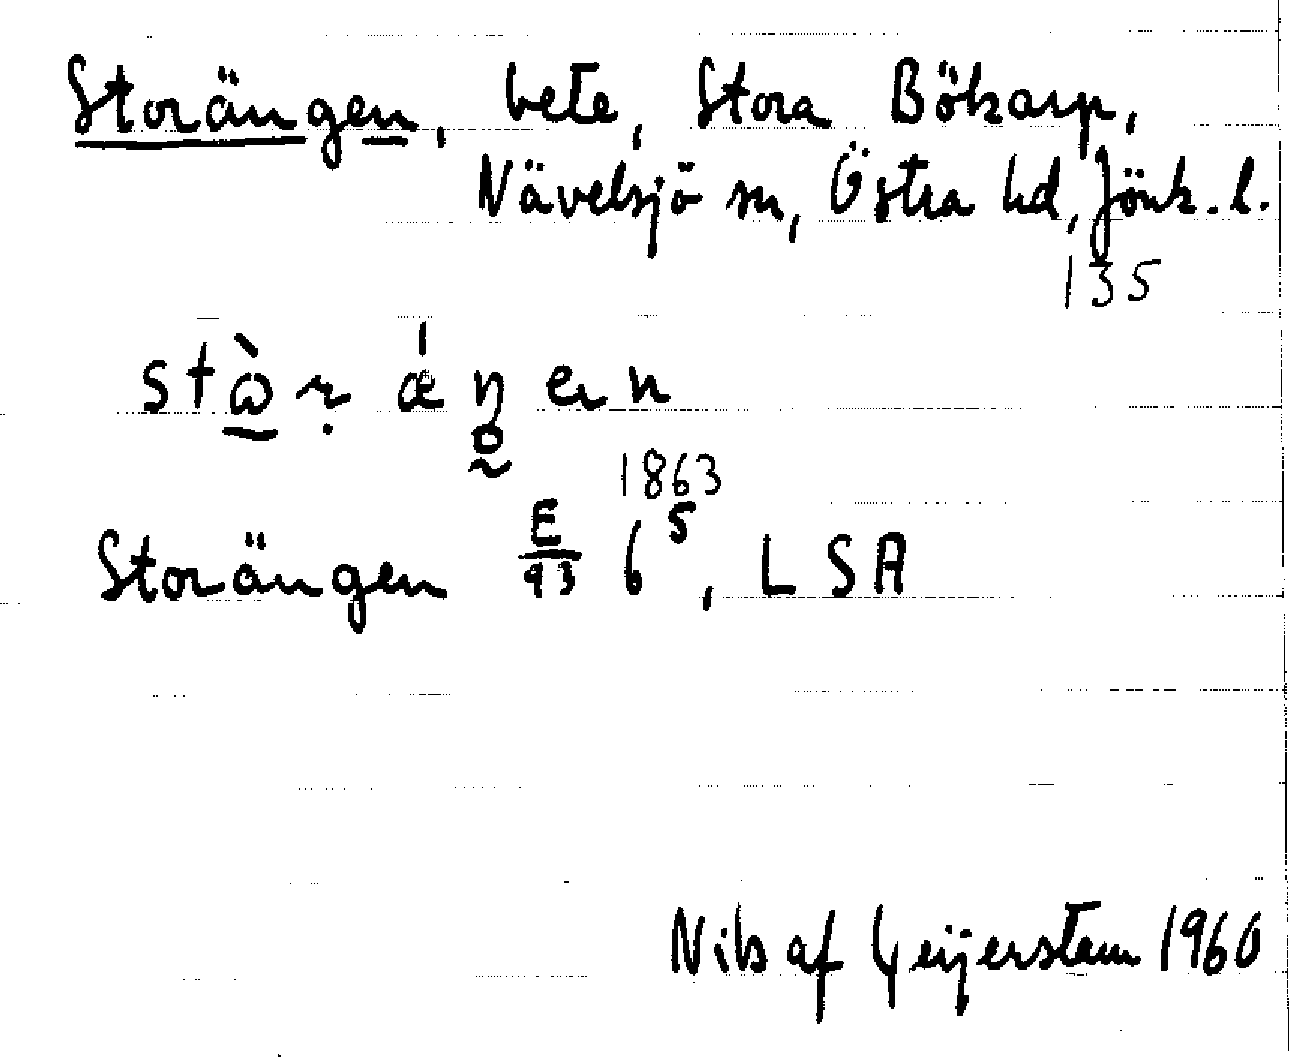 Storängen, bete, Stora Bökarp,
Nävelsjö sn, Östra hd, Jönk. l.
135
1863
Storängen E/93 6⁵, LSA
Nils af Geijerstam 1960